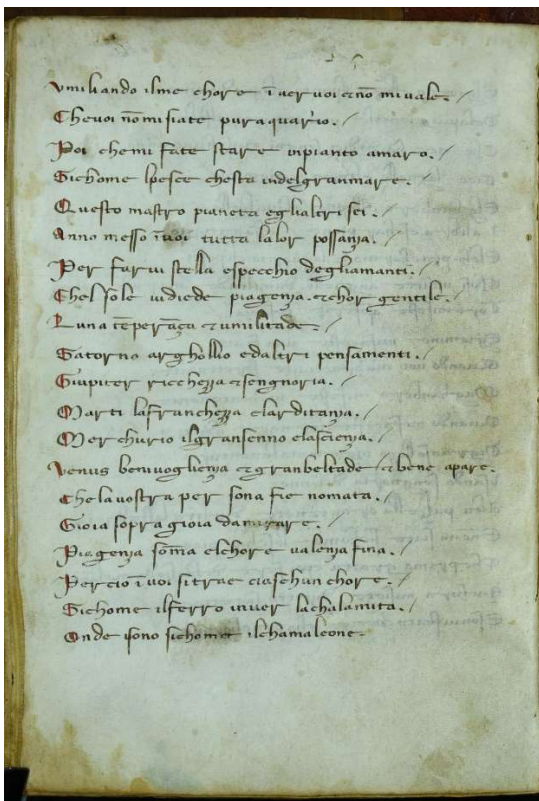 Vmiliando ilme chore īuer uoi enō miuale. /
Cheuoi nōmisiate pura quarıo. /
Poi chemi fate stare inpianto amaro. /
Sichome lpesce chesta indelgranmare. /
Questo mastro pianeta eglialtri sei. /
Anno messo īuoi tutta lalor possança. /
Per farui stella especchio degliamanti. /
Chel sole uidiede piagença echor gentile. /
Luna tēperāça eumilitade. /
Satorno arghollio edaltri pensamenti. /
Giupiter richezza esengnoria. /
Marti lafranchezza elarditança. /
Merchurio ilgransenno elasciença. /
Venus beniuogliença egranbeltade ebene apare.
Chelauostra persona fie nomata. /
Gioia sopra gioia damirare. /
Piagença sōma elchore ualença fina. /
Percio īuoi sitrae ciaschun chore. /
Sichome ilferro inuer lachalamita. /
Onde sono sichome ilchamaleone.